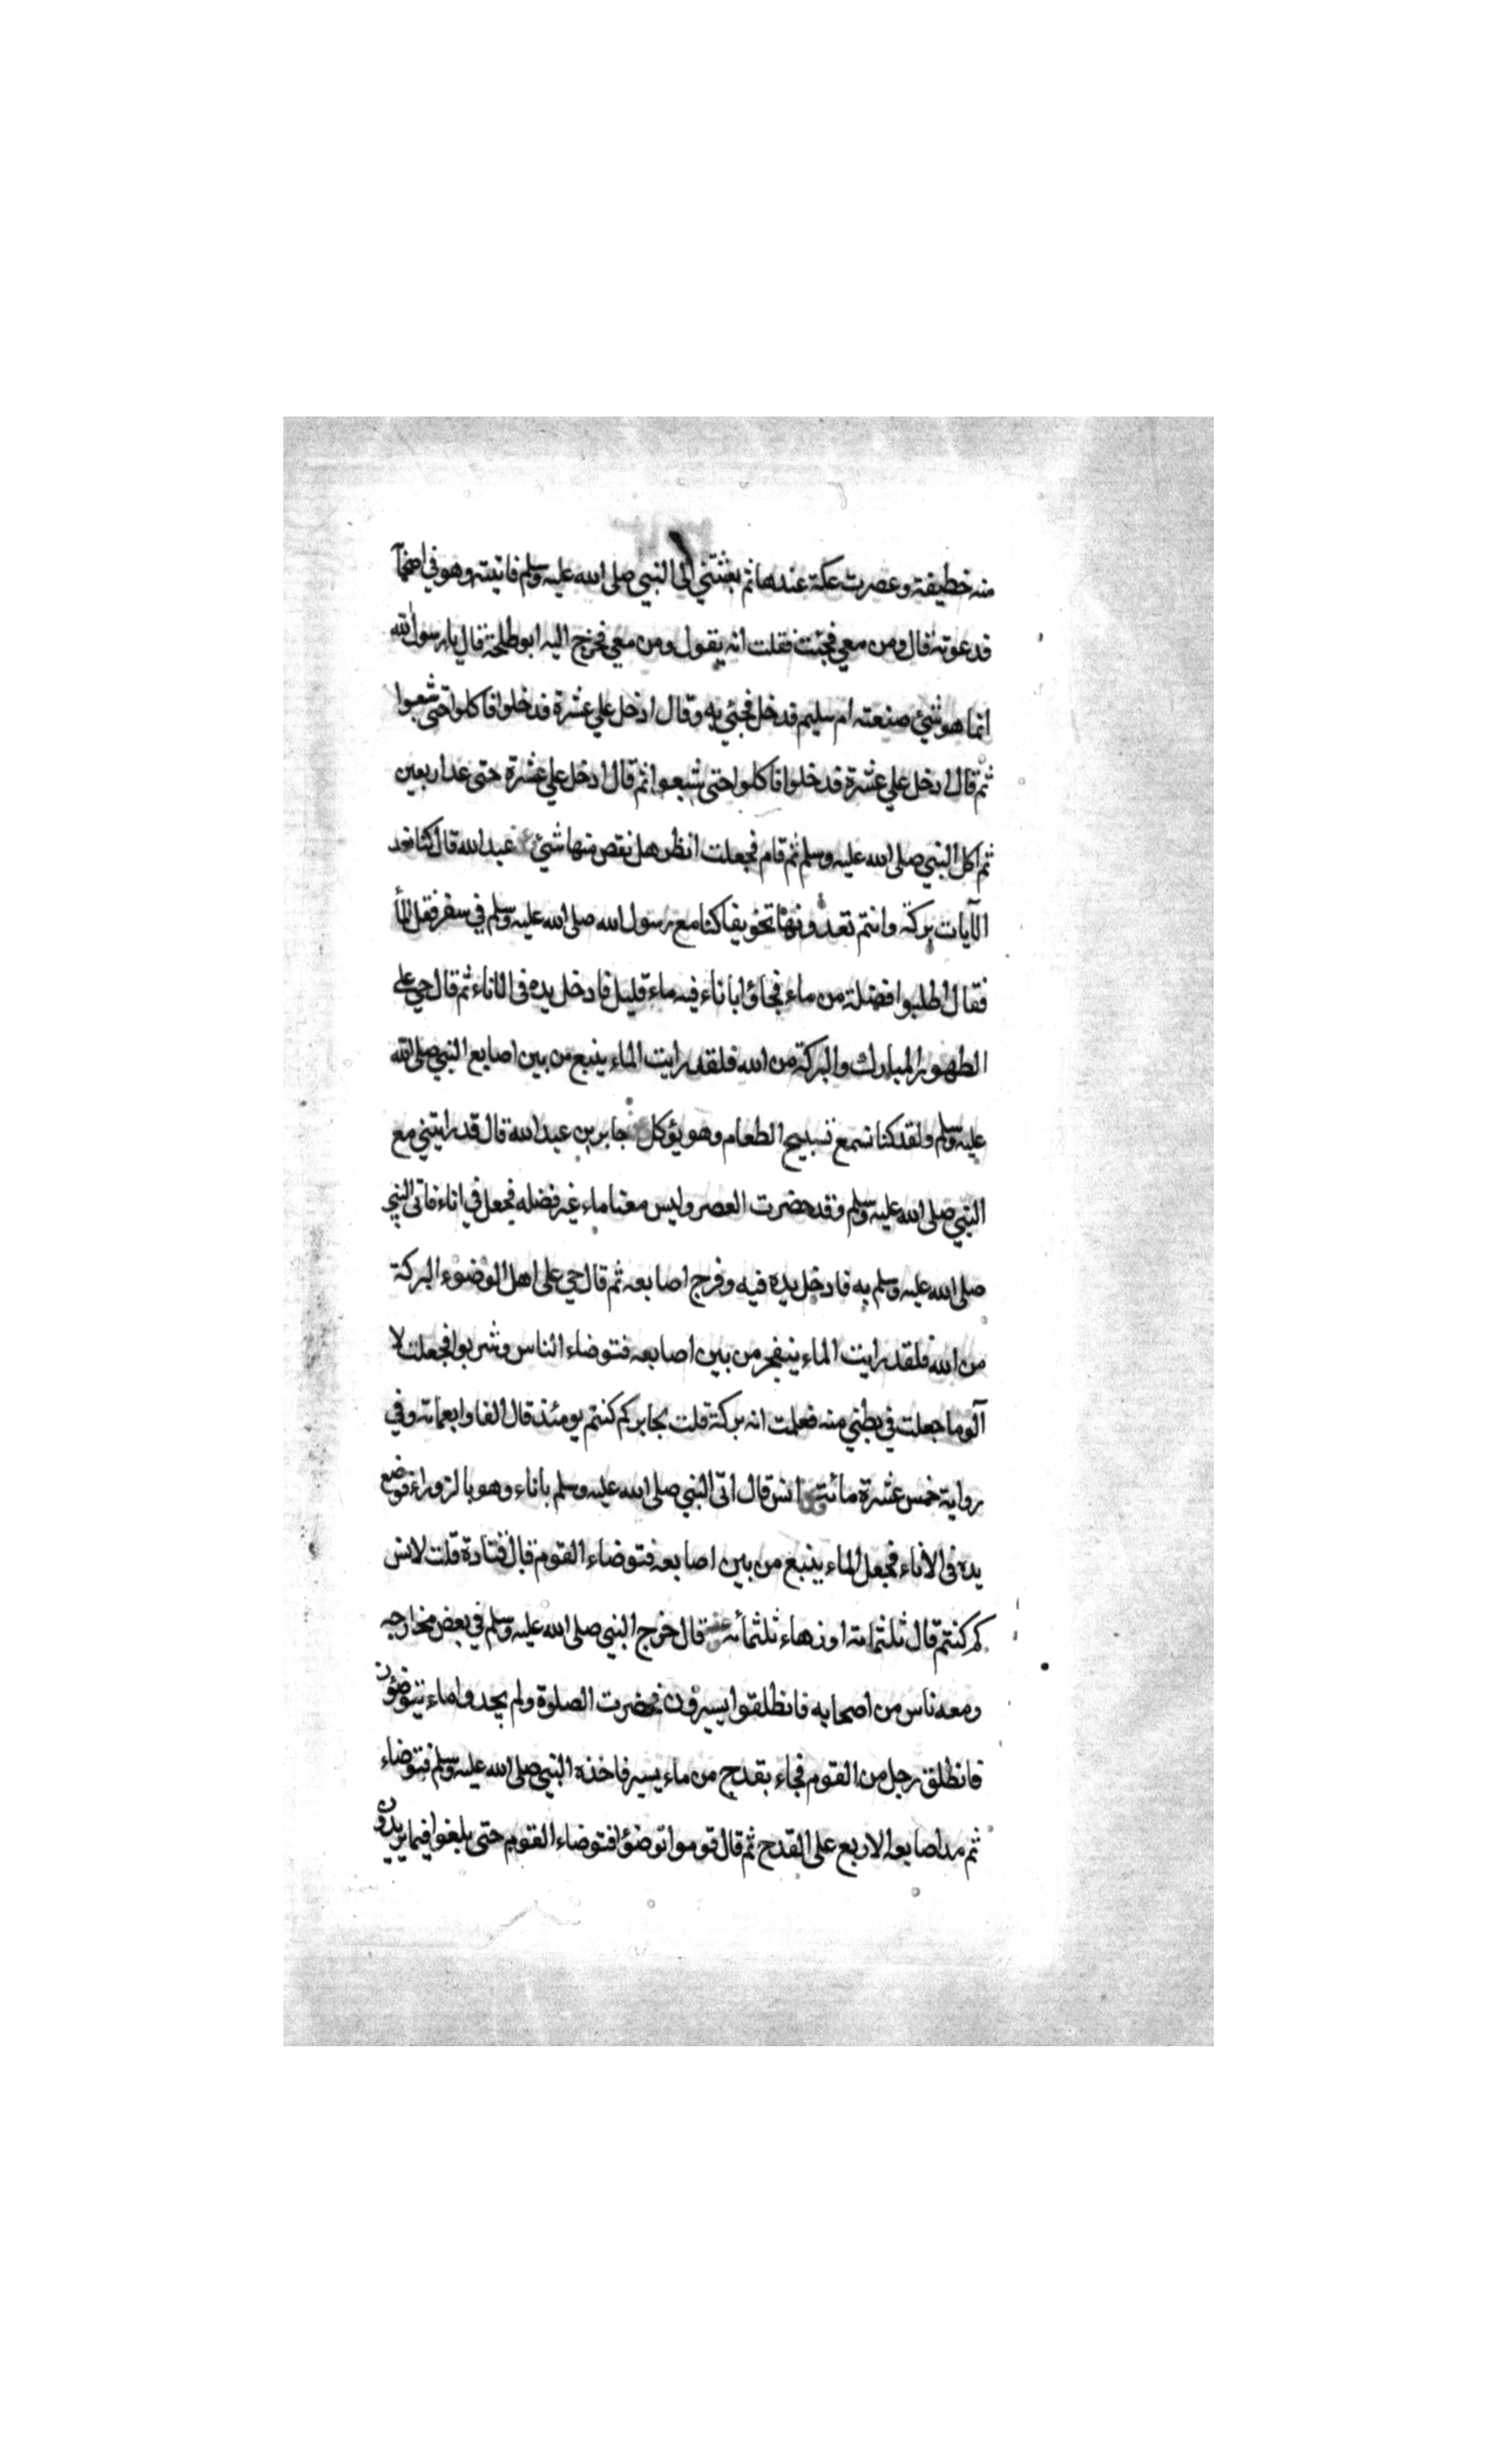 منه خطيفة وعصرت عكة عندها ثم بعثتني الى النبي صلى الله عليه وسلم فاتيته وهو في اصحابه
فدعوته قال ومن معي فجئت فقلت انه يقول ومن معي فخرج اليه ابو طلحة قال يا رسول الله
انما هو شئ صنعته ام سليم فدخل فجئ به وقال ادخل علي عشرة فدخلوا فاكلوا حتى شبعوا
ثم قال ادخل علي عشرة فدخلوا فاكلوا حتى شبعوا ثم قال ادخل علي عشرة حتى عد اربعين
ثم اكل النبي صلى الله عليه وسلم ثم قام فجعلت انظر هل نقص منها شئ عبد الله قال كنا نعد
الآيات بركة وانتم تعدونها تخويفا كنا مع رسول الله صلى الله عليه وسلم في سفر فقل الماء
فقال اطلبوا فضلة من ماء فجاؤا باناء فيه ماء قليل فادخل يده فى الاناء ثم قال حي على
الطهور المبارك والبركة من الله فلقد رايت الماء ينبع من بين اصابع النبي صلى الله
عليه وسلم ولقد كنا نسمع تسبيح الطعام وهو يؤكل جابر بن عبد الله قال قد رايتني مع
النبي صلى الله عليه وسلم وقد حضرت العصر وليس معنا ماء غير فضله فجعل في اناء فاتى النبي
صلى الله عليه وسلم به فادخل يده فيه وفرج اصابعه ثم قال حي على اهل الوضوء البركة
من الله فلقد رايت الماء ينفجر من بين اصابعه فتوضاء الناس وشربوا فجعلت لا
آلو ما جعلت في بطني منه فعلمت انه بركة قلت لجابر كم كنتم يومئذ قال الفا واربعمائة وفي
رواية خمس عشرة مائة انس قال اتى النبي صلى الله عليه وسلم باناء وهو بالزوراء فوضع
يده فى الاناء فجعل الماء ينبع من بين اصابعه فتوضاء القوم قال قتادة قلت لانس
كم كنتم قال ثلثمائة او زهاء ثلثمائة قال خرج النبي صلى الله عليه وسلم في بعض مخارجه
ومعه ناس من اصحابه فانطلقوا يسيرون فحضرت الصلوة ولم يجدوا ماء يتوضؤن
فانطلق رجل من القوم فجاء بقدح من ماء يسير فاخذه النبي صلى الله عليه وسلم فتوضاء
ثم مد اصابعه الاربع على القدح ثم قال قوموا توضؤا فتوضاء القوم حتى بلغوا فيما يريدون